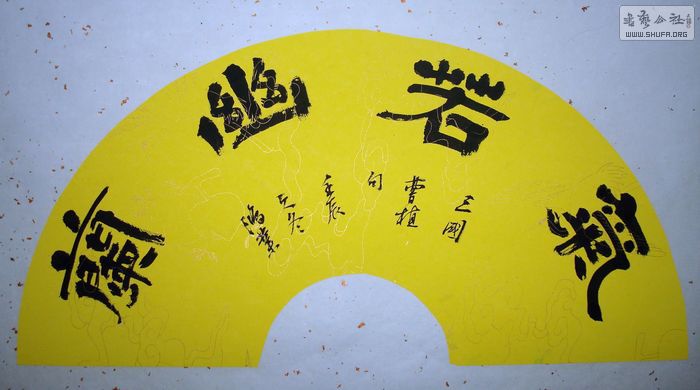 氣若幽蘭
三國
曹植
句
壬辰
之冬
书藝公社
WWW.SHUFA.ORG